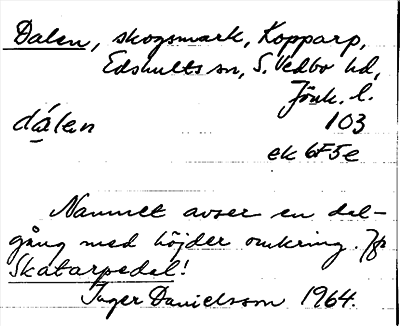 Dalen, skogsmark, Kopparp,
Edshults sn, S. Vedbo hd,
Jönk. l.
dálen 103
ek 6F5e
Namnet avser en dal-
gång med höjder omkring. Jfr
Skatarpedal!
Inger Danielsson 1964.